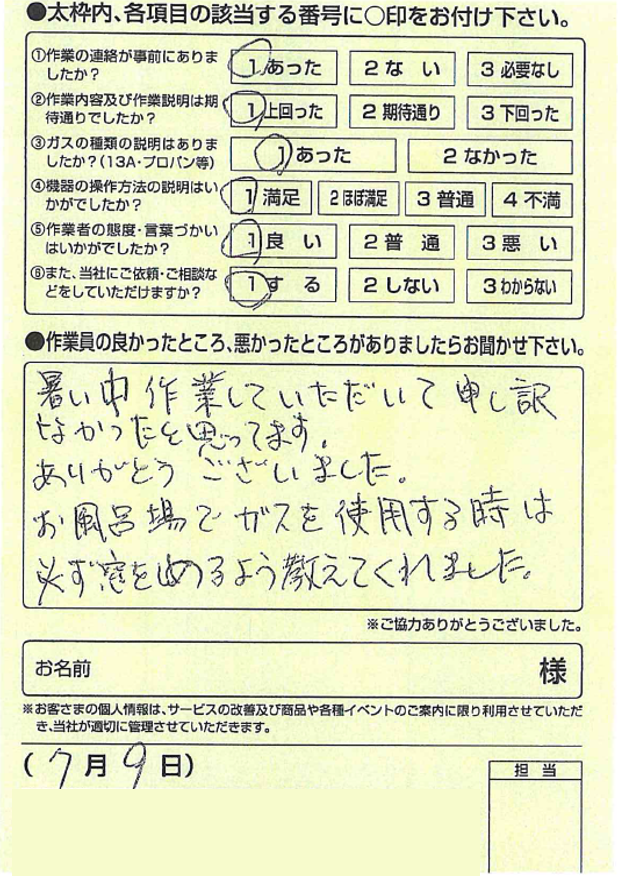 ●太枠内、各項目の該当する番号に○印をお付け下さい。
①作業の連絡が事前にありま
したか?
1 あった 2 な い 3 必要なし
②作業内容及び作業説明は期
待通りでしたか?
1 上回った 2 期待通り 3 下回った
③ガスの種類の説明はありま
したか?(13A・プロパン等)
1 あった 2 なかった
④機器の操作方法の説明はい
かがでしたか?
1 満足 2 ほぼ満足 3 普通 4 不満
⑤作業者の態度・言葉づかい
はいかがでしたか?
1 良 い 2 普 通 3 悪 い
⑥また、当社にご依頼・ご相談な
どをしていただけますか?
1 す る 2 しない 3 わからない
●作業員の良かったところ、悪かったところがありましたらお聞かせ下さい。
暑い中 作業していただいて 申し訳
なかったと思ってます。
ありがとう ございました。
お風呂場で ガスを 使用する時は
必ず窓を しめるよう教えてくれました。
※ご協力ありがとうございました。
お名前 様
※お客さまの個人情報は、サービスの改善及び商品や各種イベントのご案内に限り利用させていただ
き、当社が適切に管理させていただきます。
( 7月 9日)
担 当